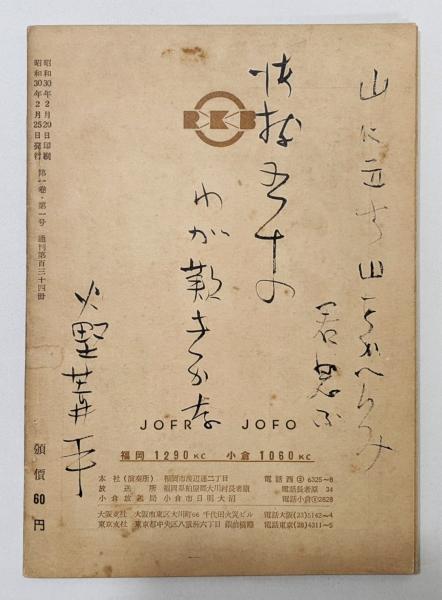 山に立ち山をかへりみ
君思ふ
五十の
わが歎きかな
火野葦平
RKB
JOFR JOFO
福岡 1290KC 小倉 1060KC
本社(演奏所) 福岡市渡辺通二丁目 電話西 6325~8
放送所 福岡県粕屋郡大川村長者原 電話長者原 34
小倉放送局 小倉市日明大沼 電話小倉 2828
大阪支社 大阪市東区大川町66 千代田火災ビル 電話大阪(23)5142~4
東京支社 東京都中央区八重洲六丁目 電話東京(28)4311~5
昭和30年2月20日印刷
昭和30年2月25日発行
第一巻・第一号 通刊第百三十四冊
頒價 60円